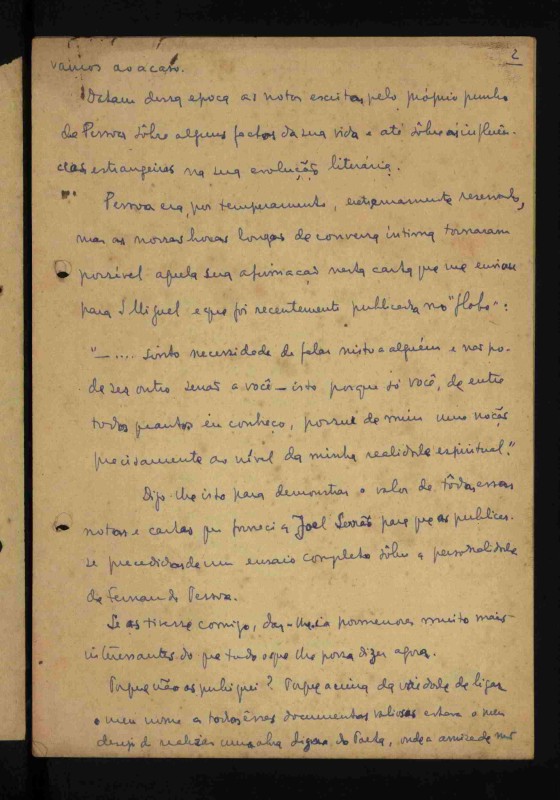 2
vamos ao acaso.
Datam dessa epoca as notas escritas pelo próprio punho
de Pessoa sôbre alguns factos da sua vida e até sôbre as influên-
cias estrangeiras na sua evolução literária.
Pessoa era, por temperamento, extremamente reservado,
mas as nossas horas longas de conversa íntima tornaram
possível aquela sua afirmação nesta carta que me enviou
para S. Miguel e que foi recentemente publicada no "Globo":
"— .... sinto necessidade de falar nisto a alguém e não po-
de ser outro senão a você — isto porque só você, de entre
todos quantos eu conheço, possue de mim uma noção
precisamente ao nível da minha realidade espiritual."
Digo-lhe isto para demonstrar o valor de tôdas essas
notas e cartas que forneci a Joel Serrão para que as publicas-
se precedidas de um ensaio completo sôbre a personalidade
de Fernando Pessoa.
Se as tivesse comigo, dar-lhe-ia pormenores muito mais
interessantes do que tudo o que lhe possa dizer agora.
Porque não as publiquei? Porque acima da vaidade de ligar
o meu nome a todos êsses documentos valiosos estava o meu
desejo de realizar uma obra digna do Poeta, onde a amizade